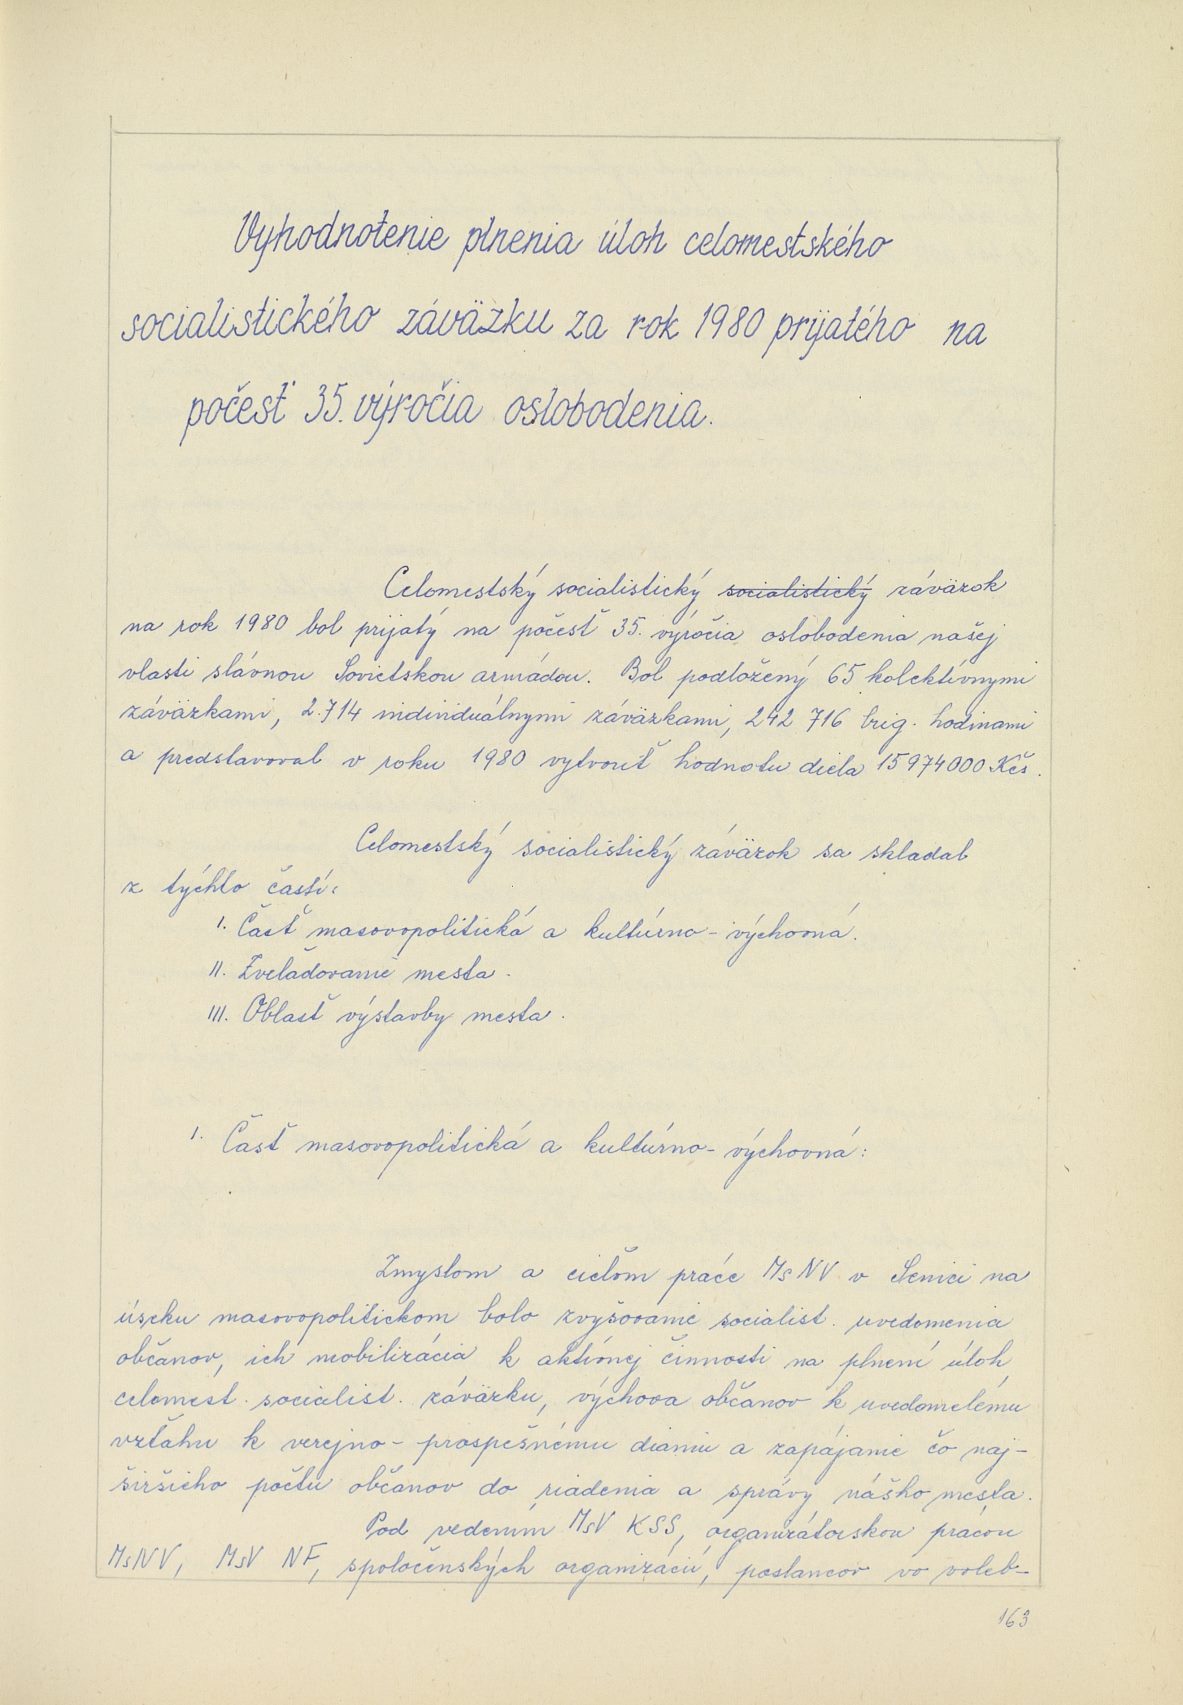 Vyhodnotenie plnenia úloh celomestského
socialistického záväzku za rok 1980 prijatého na
počesť 35. výročia oslobodenia.
Celomestský socialistický socialistický záväzok
na rok 1980 bol prijatý na počesť 35. výročia oslobodenia našej
vlasti slávnou Sovietskou armádou. Bol podložený 65 kolektívnymi
záväzkami, 2.714 individuálnymi záväzkami, 242 716 brig. hodinami
a predstavoval v roku 1980 vytvoriť hodnotu diela 15974000 Kčs.
Celomestský socialistický záväzok sa skladal
z týchto častí:
I. Časť masovopolitická a kultúrno-výchovná.
II. Zveľaďovanie mesta.
III. Oblasť výstavby mesta.
I. Časť masovopolitická a kultúrno-výchovná:
Zmyslom a cieľom práce MsNV v Senici na
úseku masovopolitickom bolo zvyšovanie socialist. uvedomenia
občanov, ich mobilizácia k aktívnej činnosti na plnení úloh
celomest. socialist. záväzku, výchova občanov k uvedomelému
vzťahu k verejno-prospešnému dianiu a zapájanie čo naj-
širšieho počtu občanov do riadenia a správy nášho mesta.
Pod vedením MsV KSS, organizátorskou prácou
MsNV, MsV NF, spoločenských organizácií, poslancov vo voleb-
163